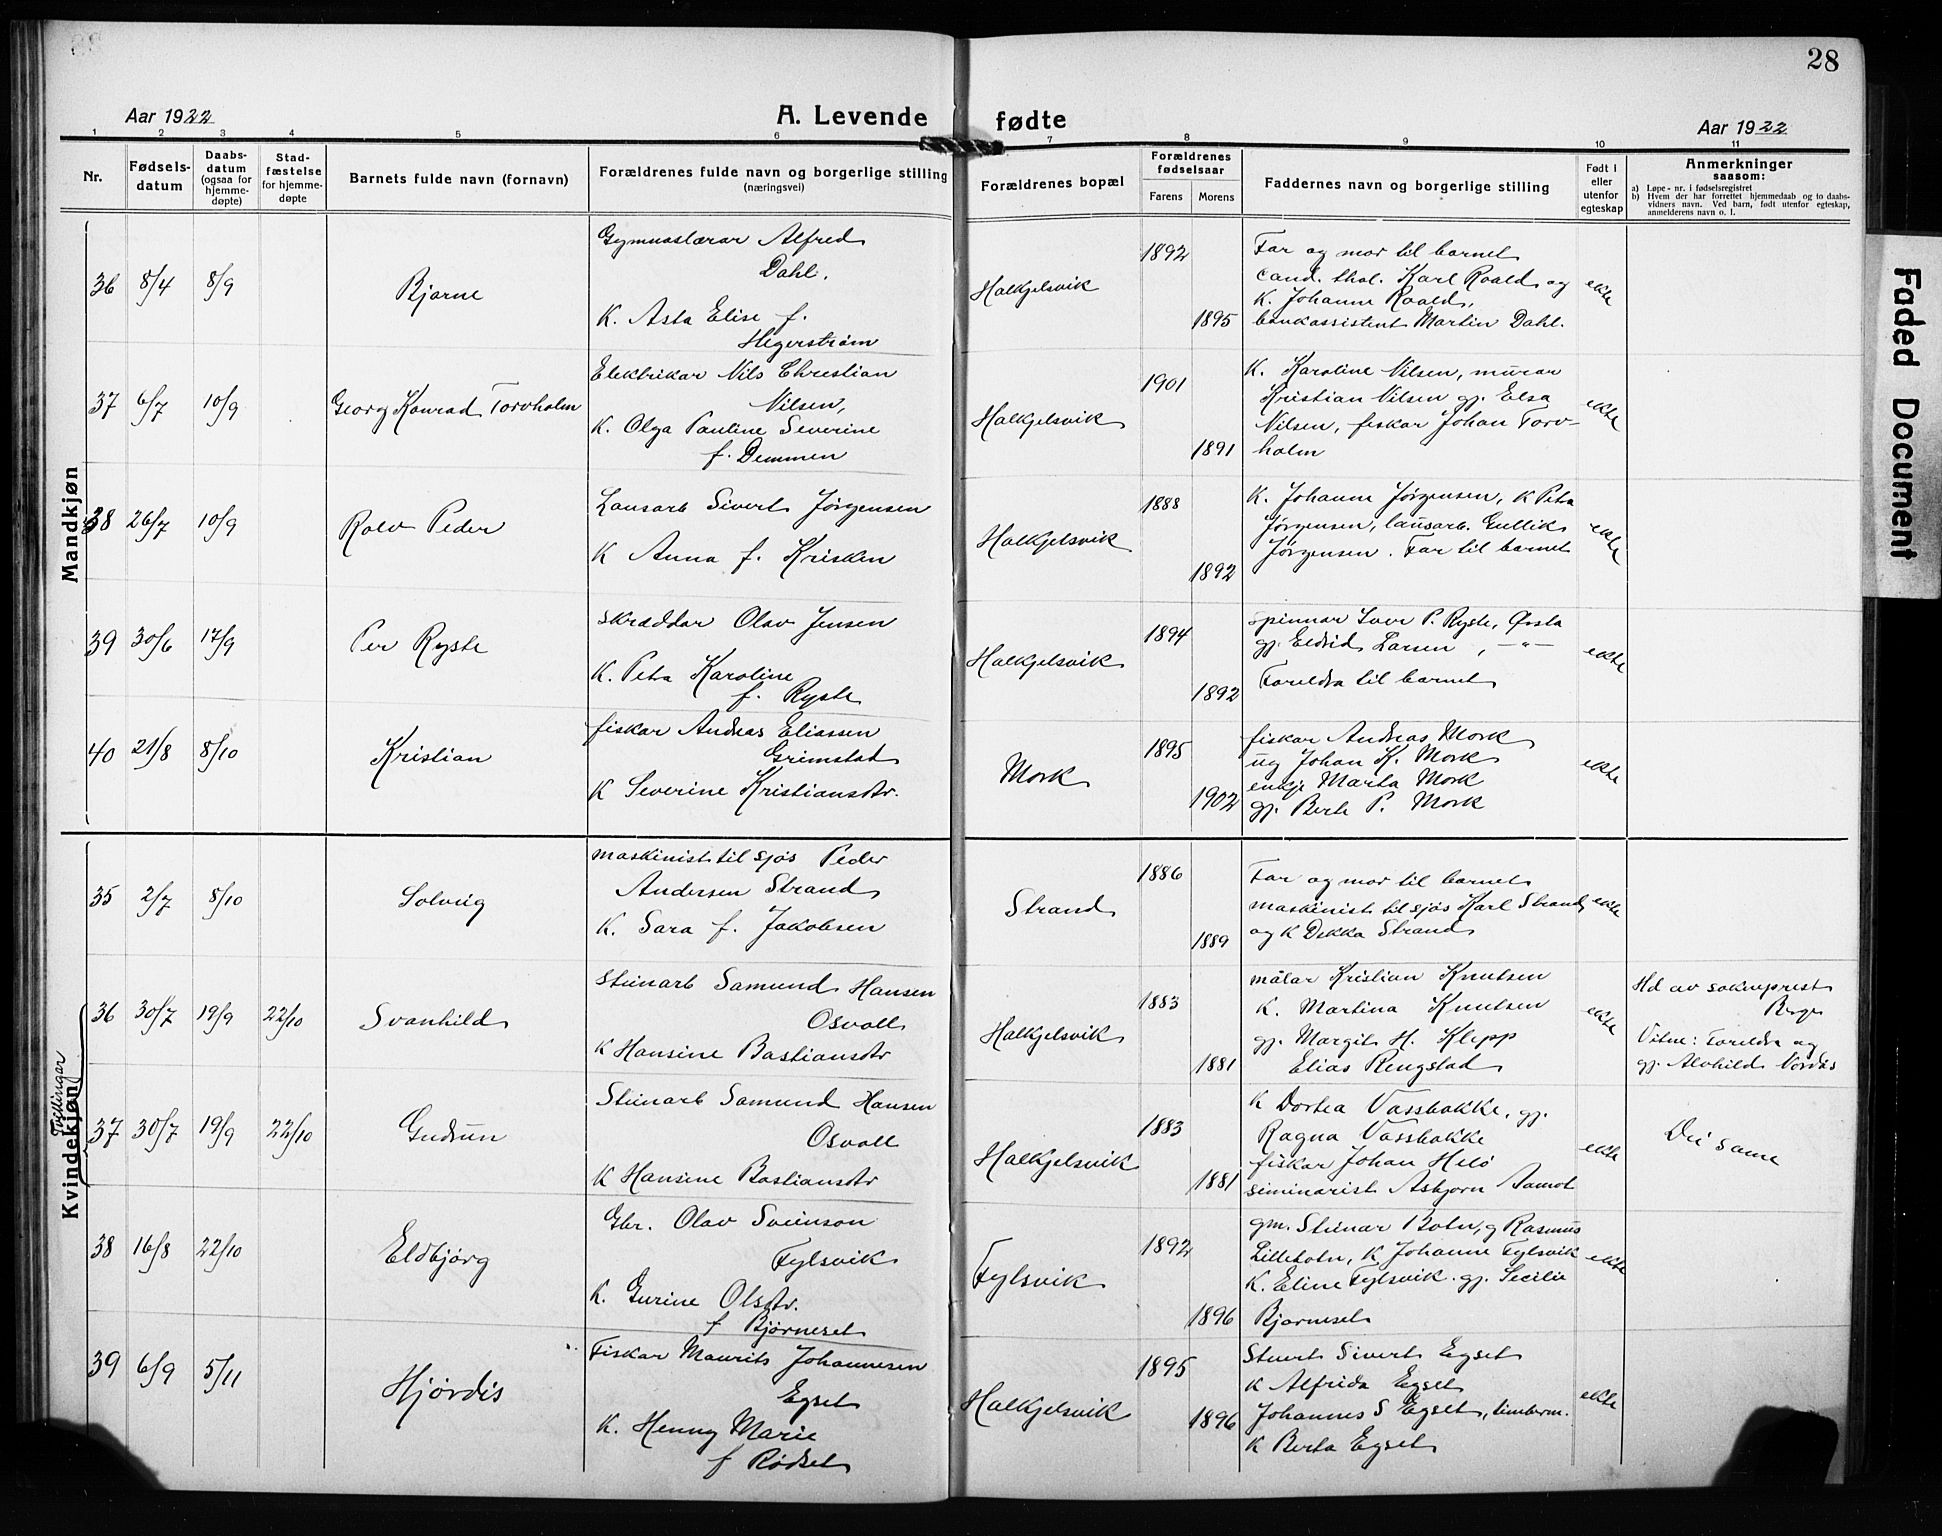 28
Aar 1922
A. Levende fødte
Aar 1922
1 2 3 4 5 6 7 8 9 10 11
Nr.
Fødsels-
datum
Daabs-
datum
(ogsaa for
hjemme-
døpte)
Stad-
fæstelse
for hjemme-
døpte
Barnets fulde navn (fornavn)
Forældrenes fulde navn og borgerlige stilling
(næringsvei)
Forældrenes bopæl
Forældrenes
fødselsaar
Farens Morens
Faddernes navn og borgerlige stilling
Født i
eller
utenfor
egteskap
Anmerkninger
saasom:
a) Løpe-nr. i fødselsregistret
b) Hvem der har forrettet hjemmedaab og to daabs-
vidners navn. Ved barn, født utenfor egteskap,
anmelderens navn o. l.
Mandkjøn
36 8/4 8/9
Bjarne
Gymnaslærar Alfred
Dahl.
K. Asta Elise f.
Hegerstrøm
Halkjelsvik
1892
1895
Far og mor til barnet
cand. theol. Karl Roald og
K. Johanne Roald,
bankassistent Martin Dahl.
ekte
37 6/7 10/9
Georg Konrad Torvholm
Elektrikar Nils Christian
Nilsen,
K. Olga Pauline Severine
f. Demmen
Halkjelsvik
1901
1891
K. Karoline Nilsen, murar
Kristian Nilsen gj. Elsa
Nilsen, fiskar Johan Torv-
holm
ekte
38 26/7 10/9
Rolv Peder
Lausarb Sivert Jørgensen
K Anna f. Krisken
Halkjelsvik
1888
1892
K. Johanne Jørgensen, K Peta
Jørgensen, lausarb. Gullik
Jørgensen. Far til barnet
ekte
39 30/6 17/9
Per Ryste
skræddar Olav Jensen
K. Peta Karoline
f. Ryste
Halkjelsvik
1894
1892
spinnar Iver P. Ryste, Ørsta
gj. Eldrid Larsen, —"—
Foreldra til barnet
ekte
40 21/8 8/10
Kristian
fiskar Andreas Eliassen
Grimstad
K Severine Kristiansdtr.
Mork
1895
1902
fiskar Andreas Mork
ug Johan K. Mork
enkje Marta Mork
gj. Berte P. Mork
ekte
Kvindekjøn
35 2/7 8/10
Solveig
maskinist til sjøs Peder
Andersen Strand
K. Sara f. Jakobsen
Strand
1886
1889
Far og mor til barnet
maskinist til sjøs Karl Strand
og K Dekka Strand
ekte
Tvillingar
36 30/7 19/9 22/10
Svanhild
Steinarb Samund Hansen
Osvoll
K Hansine Bastiansdtr
Halkjelsvik
1883
1881
målar Kristian Knutsen
K. Martina Knutsen
gj. Margit H. Klepp
Elias Rengstad
ekte
Hd av sokneprest
Berge
Vitne: Foreldra og
gj. Alvhild Nordås
37 30/7 19/9 22/10
Gudrun
Steinarb Samund Hansen
Osvoll
K Hansine Bastiansdtr
Halkjelsvik
1883
1881
K Dortea Vassbakke, gj.
Ragna Vassbakke
fiskar Johan Helø
seminarist Asbjørn Aamot
ekte
Dei same
38 16/8 22/10
Eldbjørg
Gbr. Olav Sveinson
Fylsvik
K. Gurine Olsdtr.
f Bjørneset
Fylsvik
1892
1896
gm. Steinar Botn, g Rasmus
Lillebotn, K Johanne Fylsvik
K. Eline Fylsvik. gj. Secilie
Bjørneset
ekte
39 6/9 5/11
Hjørdis
Fiskar Maurits Johannesen
Egset
K. Henny Marie
f Rødset
Halkjelsvik
1895
1896
Stuert Sivert Egset
K Alfrida Egset
Johannes S Egset, timberm.
K Berta Egset
ekte
Faded Document